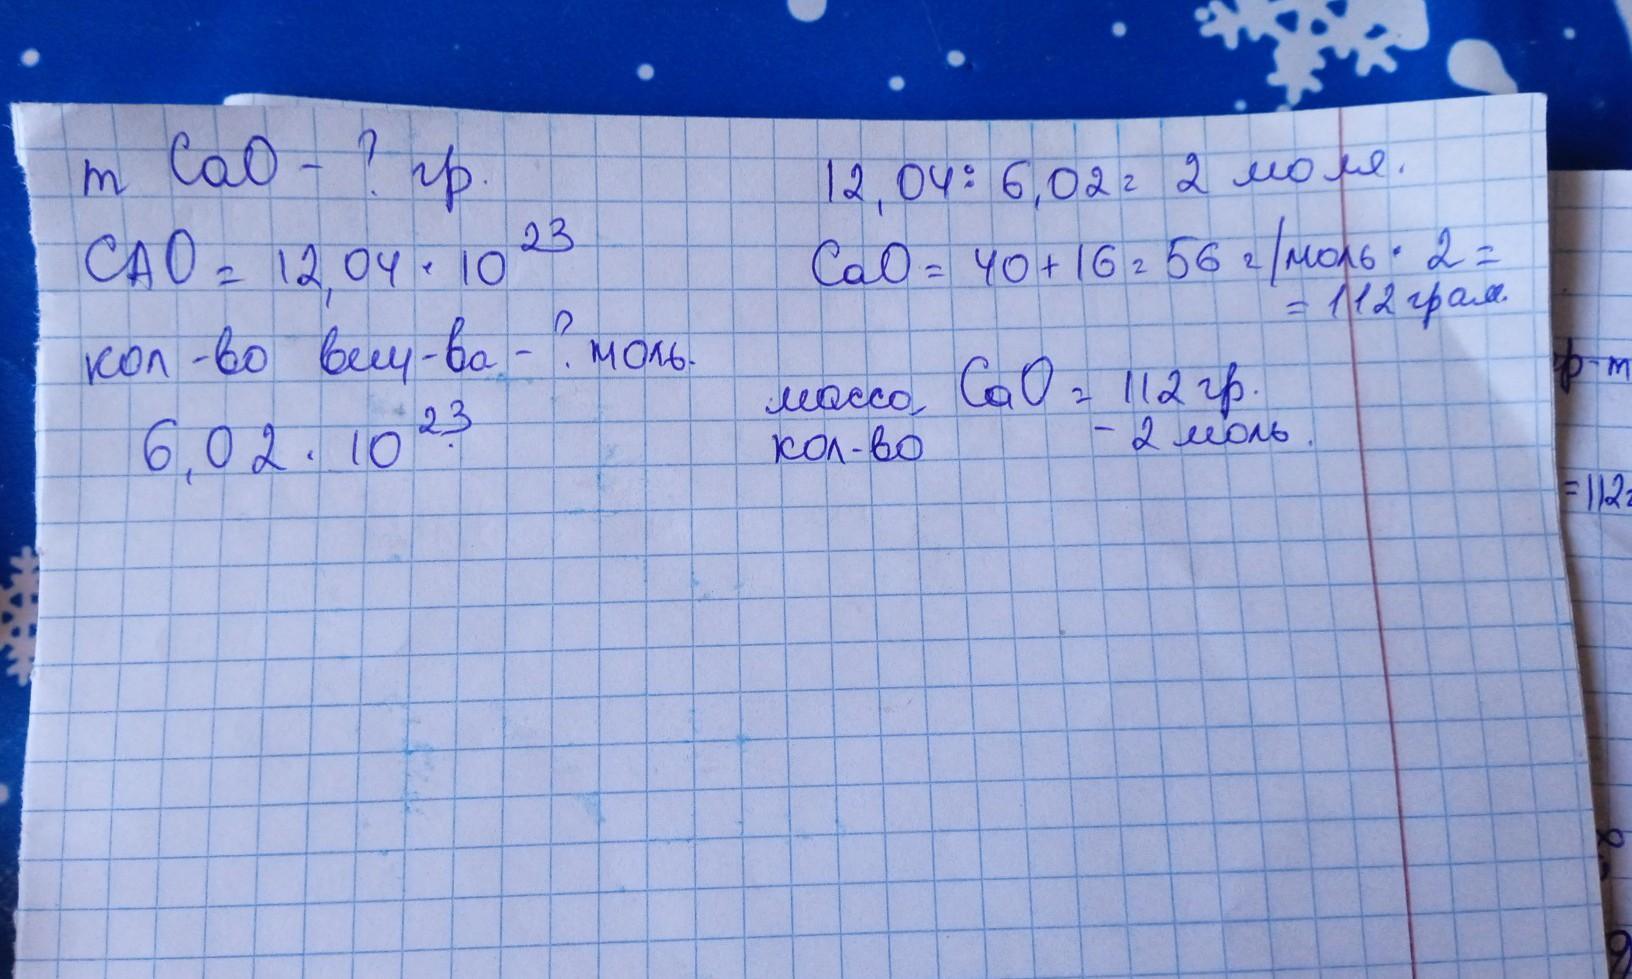 m CaO - ? гр.
CAO = 12,04 · 10²³
кол-во вещ-ва - ? моль.
6,02 · 10²³
12,04 : 6,02 = 2 моля.
CaO = 40 + 16 = 56 г/моль · 2 =
= 112 грам.
масса CaO = 112 гр.
кол-во - 2 моль.
р-m
=112г